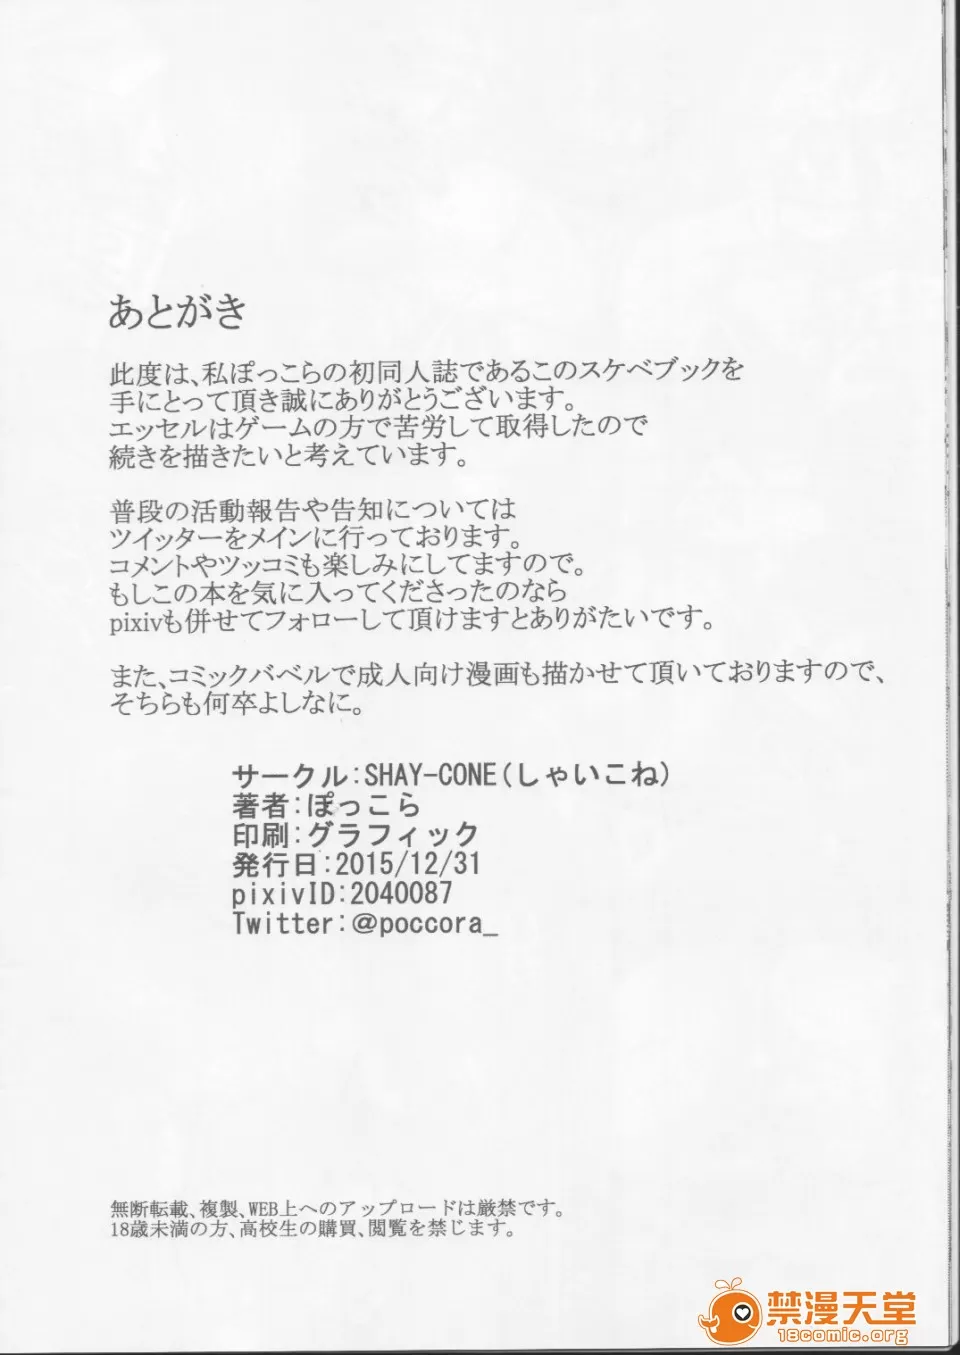 あとがき
此度は、私ぽっこらの初同人誌であるこのスケベブックを
手にとって頂き誠にありがとうございます。
エッセルはゲームの方で苦労して取得したので
続きを描きたいと考えています。
普段の活動報告や告知については
ツイッターをメインに行っております。
コメントやツッコミも楽しみにしてますので。
もしこの本を気に入ってくださったのなら
pixivも併せてフォローして頂けますとありがたいです。
また、コミックバベルで成人向け漫画も描かせて頂いておりますので、
そちらも何卒よしなに。
サークル:SHAY-CONE(しゃいこね)
著者:ぽっこら
印刷:グラフィック
発行日:2015/12/31
pixivID:2040087
Twitter:@poccora_
無断転載、複製、WEB上へのアップロードは厳禁です。
18歳未満の方、高校生の購買、閲覧を禁じます。
禁漫天堂
18comic.org